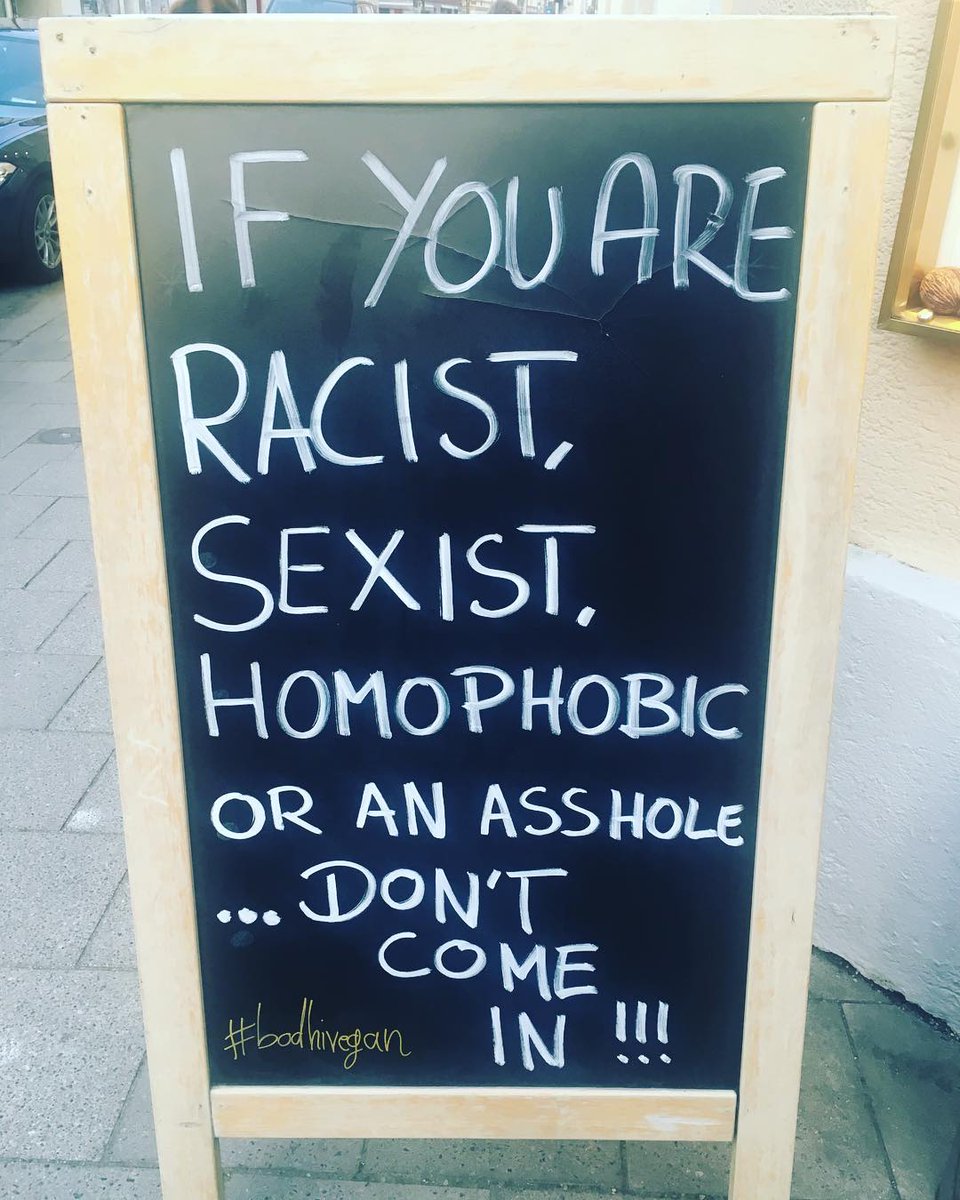 IF YOU ARE
RACIST,
SEXIST,
HOMOPHOBIC
OR AN ASSHOLE
...DON'T
COME
IN !!!
#bodhivegan